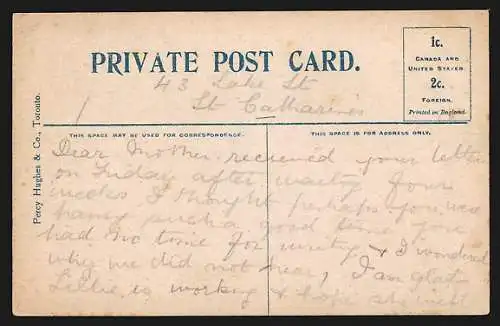 PRIVATE POST CARD.
1c.
CANADA AND
UNITED STATES.
2c.
FOREIGN.
Printed in England.
43 Lake St
St Catharines
THIS SPACE MAY BE USED FOR CORRESPONDENCE.
THIS SPACE IS FOR ADDRESS ONLY.
Percy Hughes & Co., Toronto.
Dear Mother recieved your letter
on Friday after waiting four
weeks I thought perhaps you was
having such a good time you
had no time for writing & I wondered
why we did not hear, I am glad
Lillie is working & hope she will